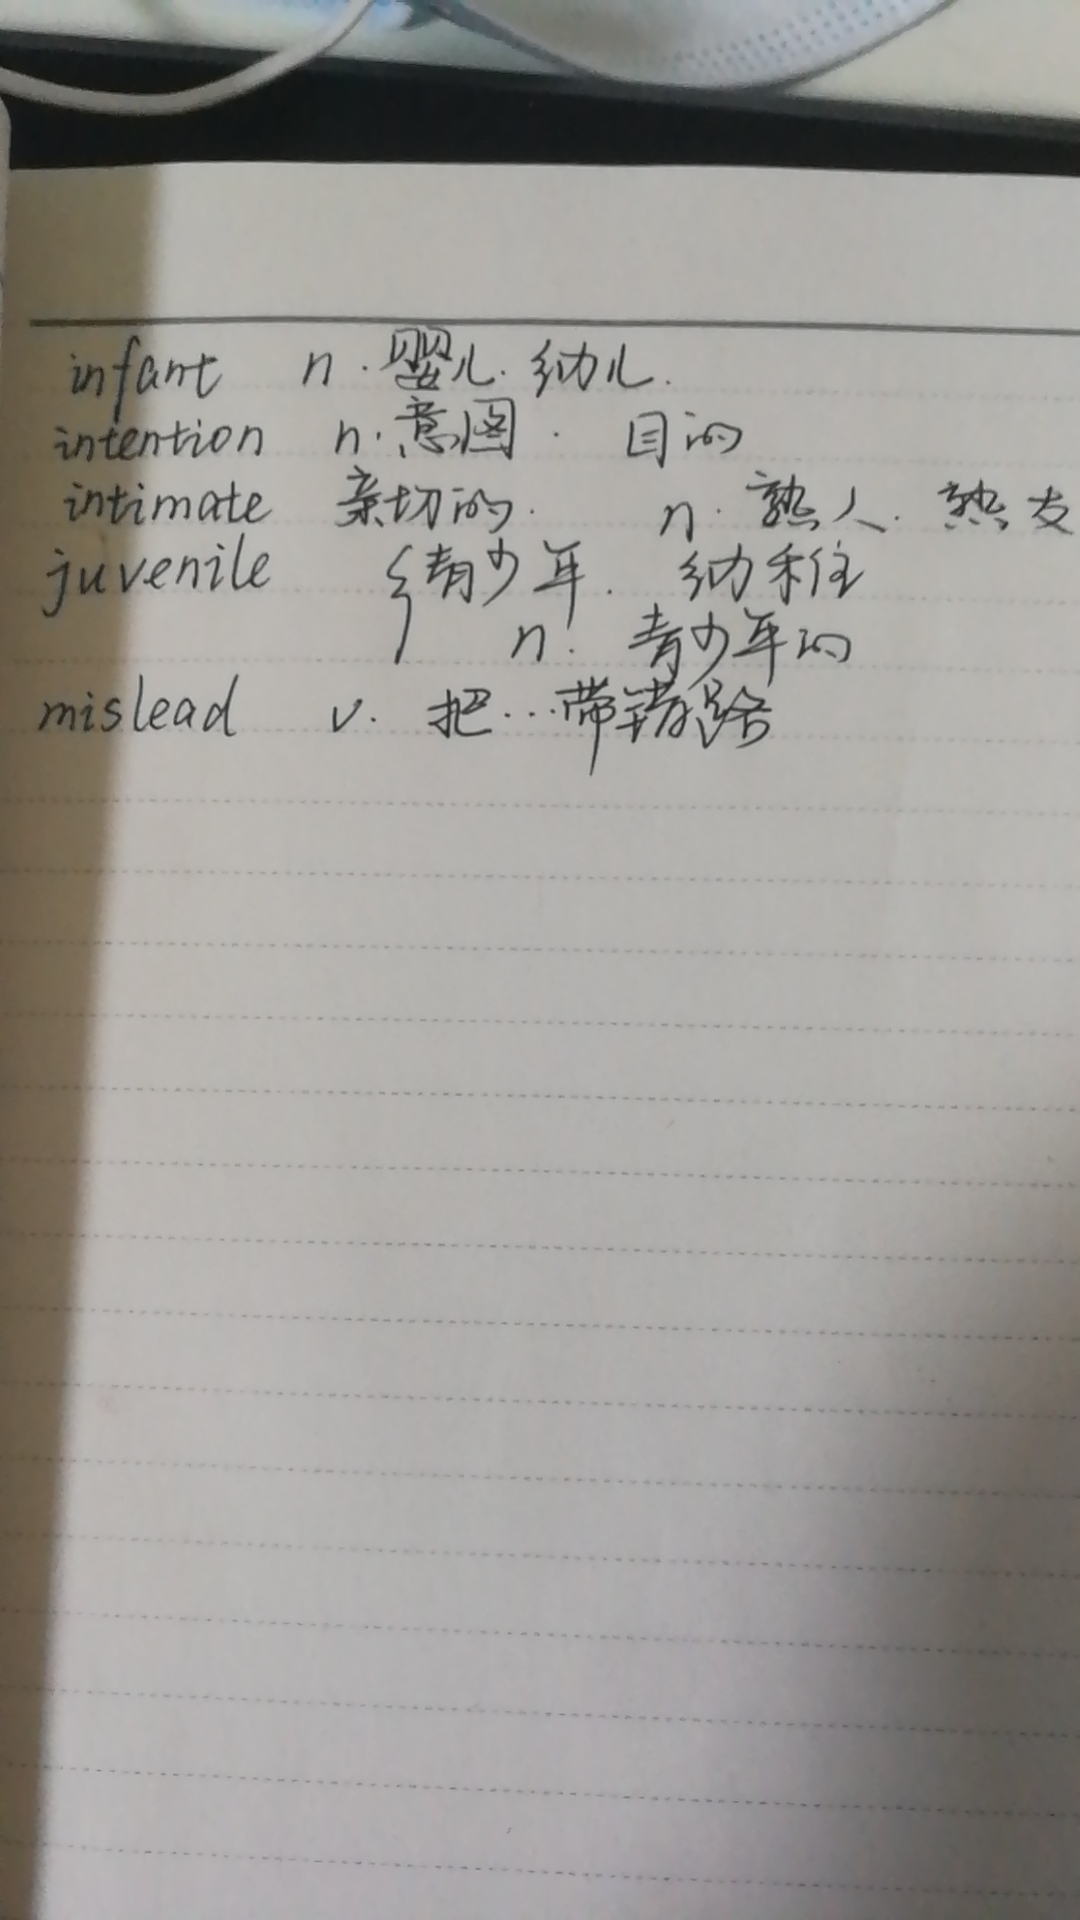 infant n. 婴儿. 幼儿.
intention n. 意图. 目的
intimate 亲切的. n. 熟人. 热友
juvenile { 青少年. 幼稚
n. 青少年的
mislead v. 把...带错路